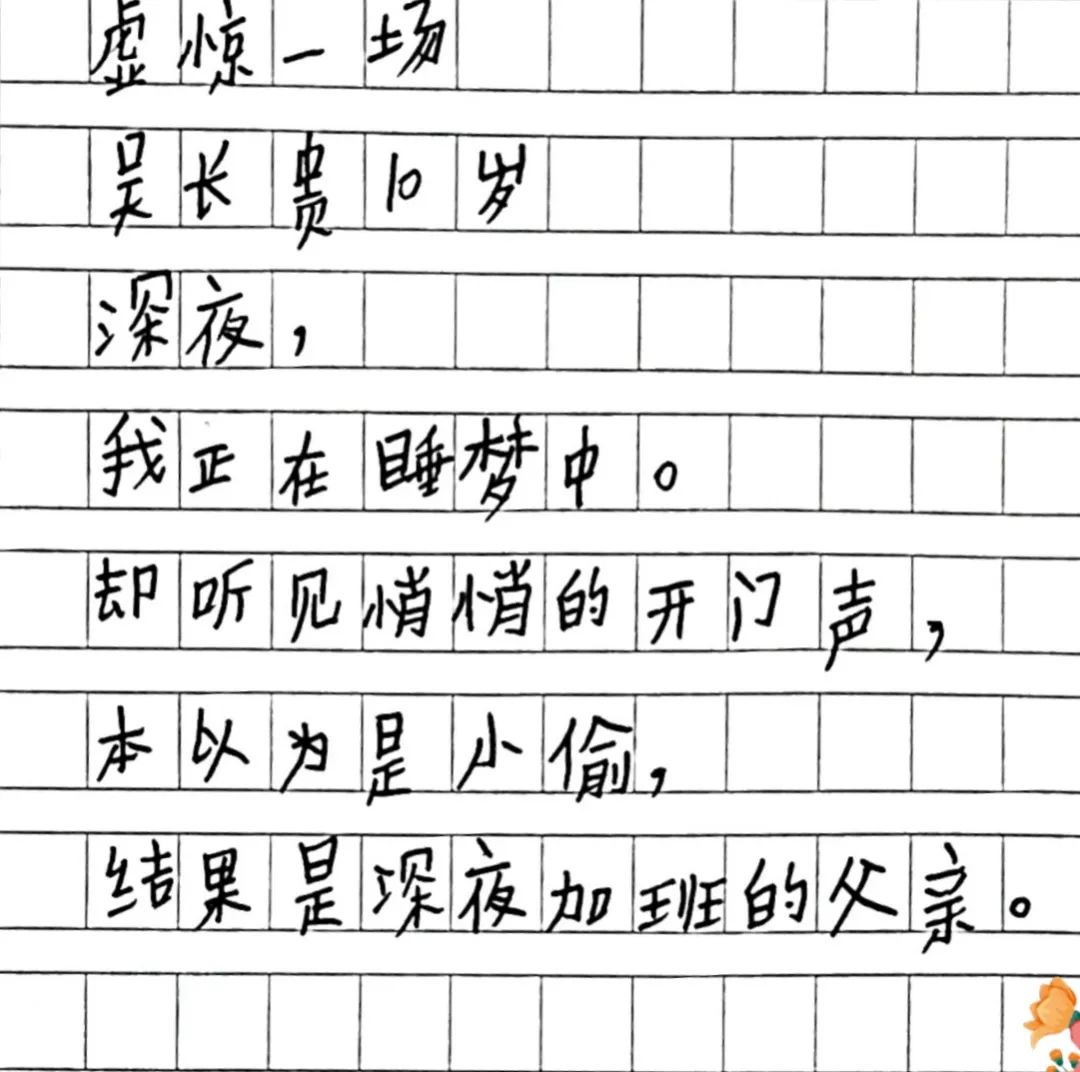 虚惊一场
吴长贵10岁
深夜，
我正在睡梦中。
却听见悄悄的开门声，
本以为是小偷，
结果是深夜加班的父亲。